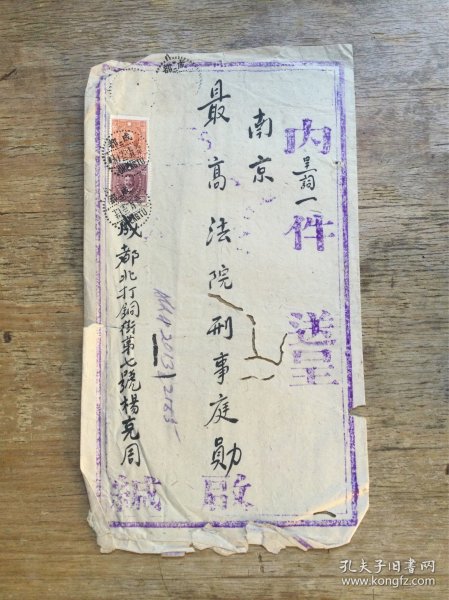 内呈詞一件 送呈
南京
最高法院刑事庭勛
啟
成都北打銅街第七號楊克周
緘
孔夫子旧书网
www.kongfz.com